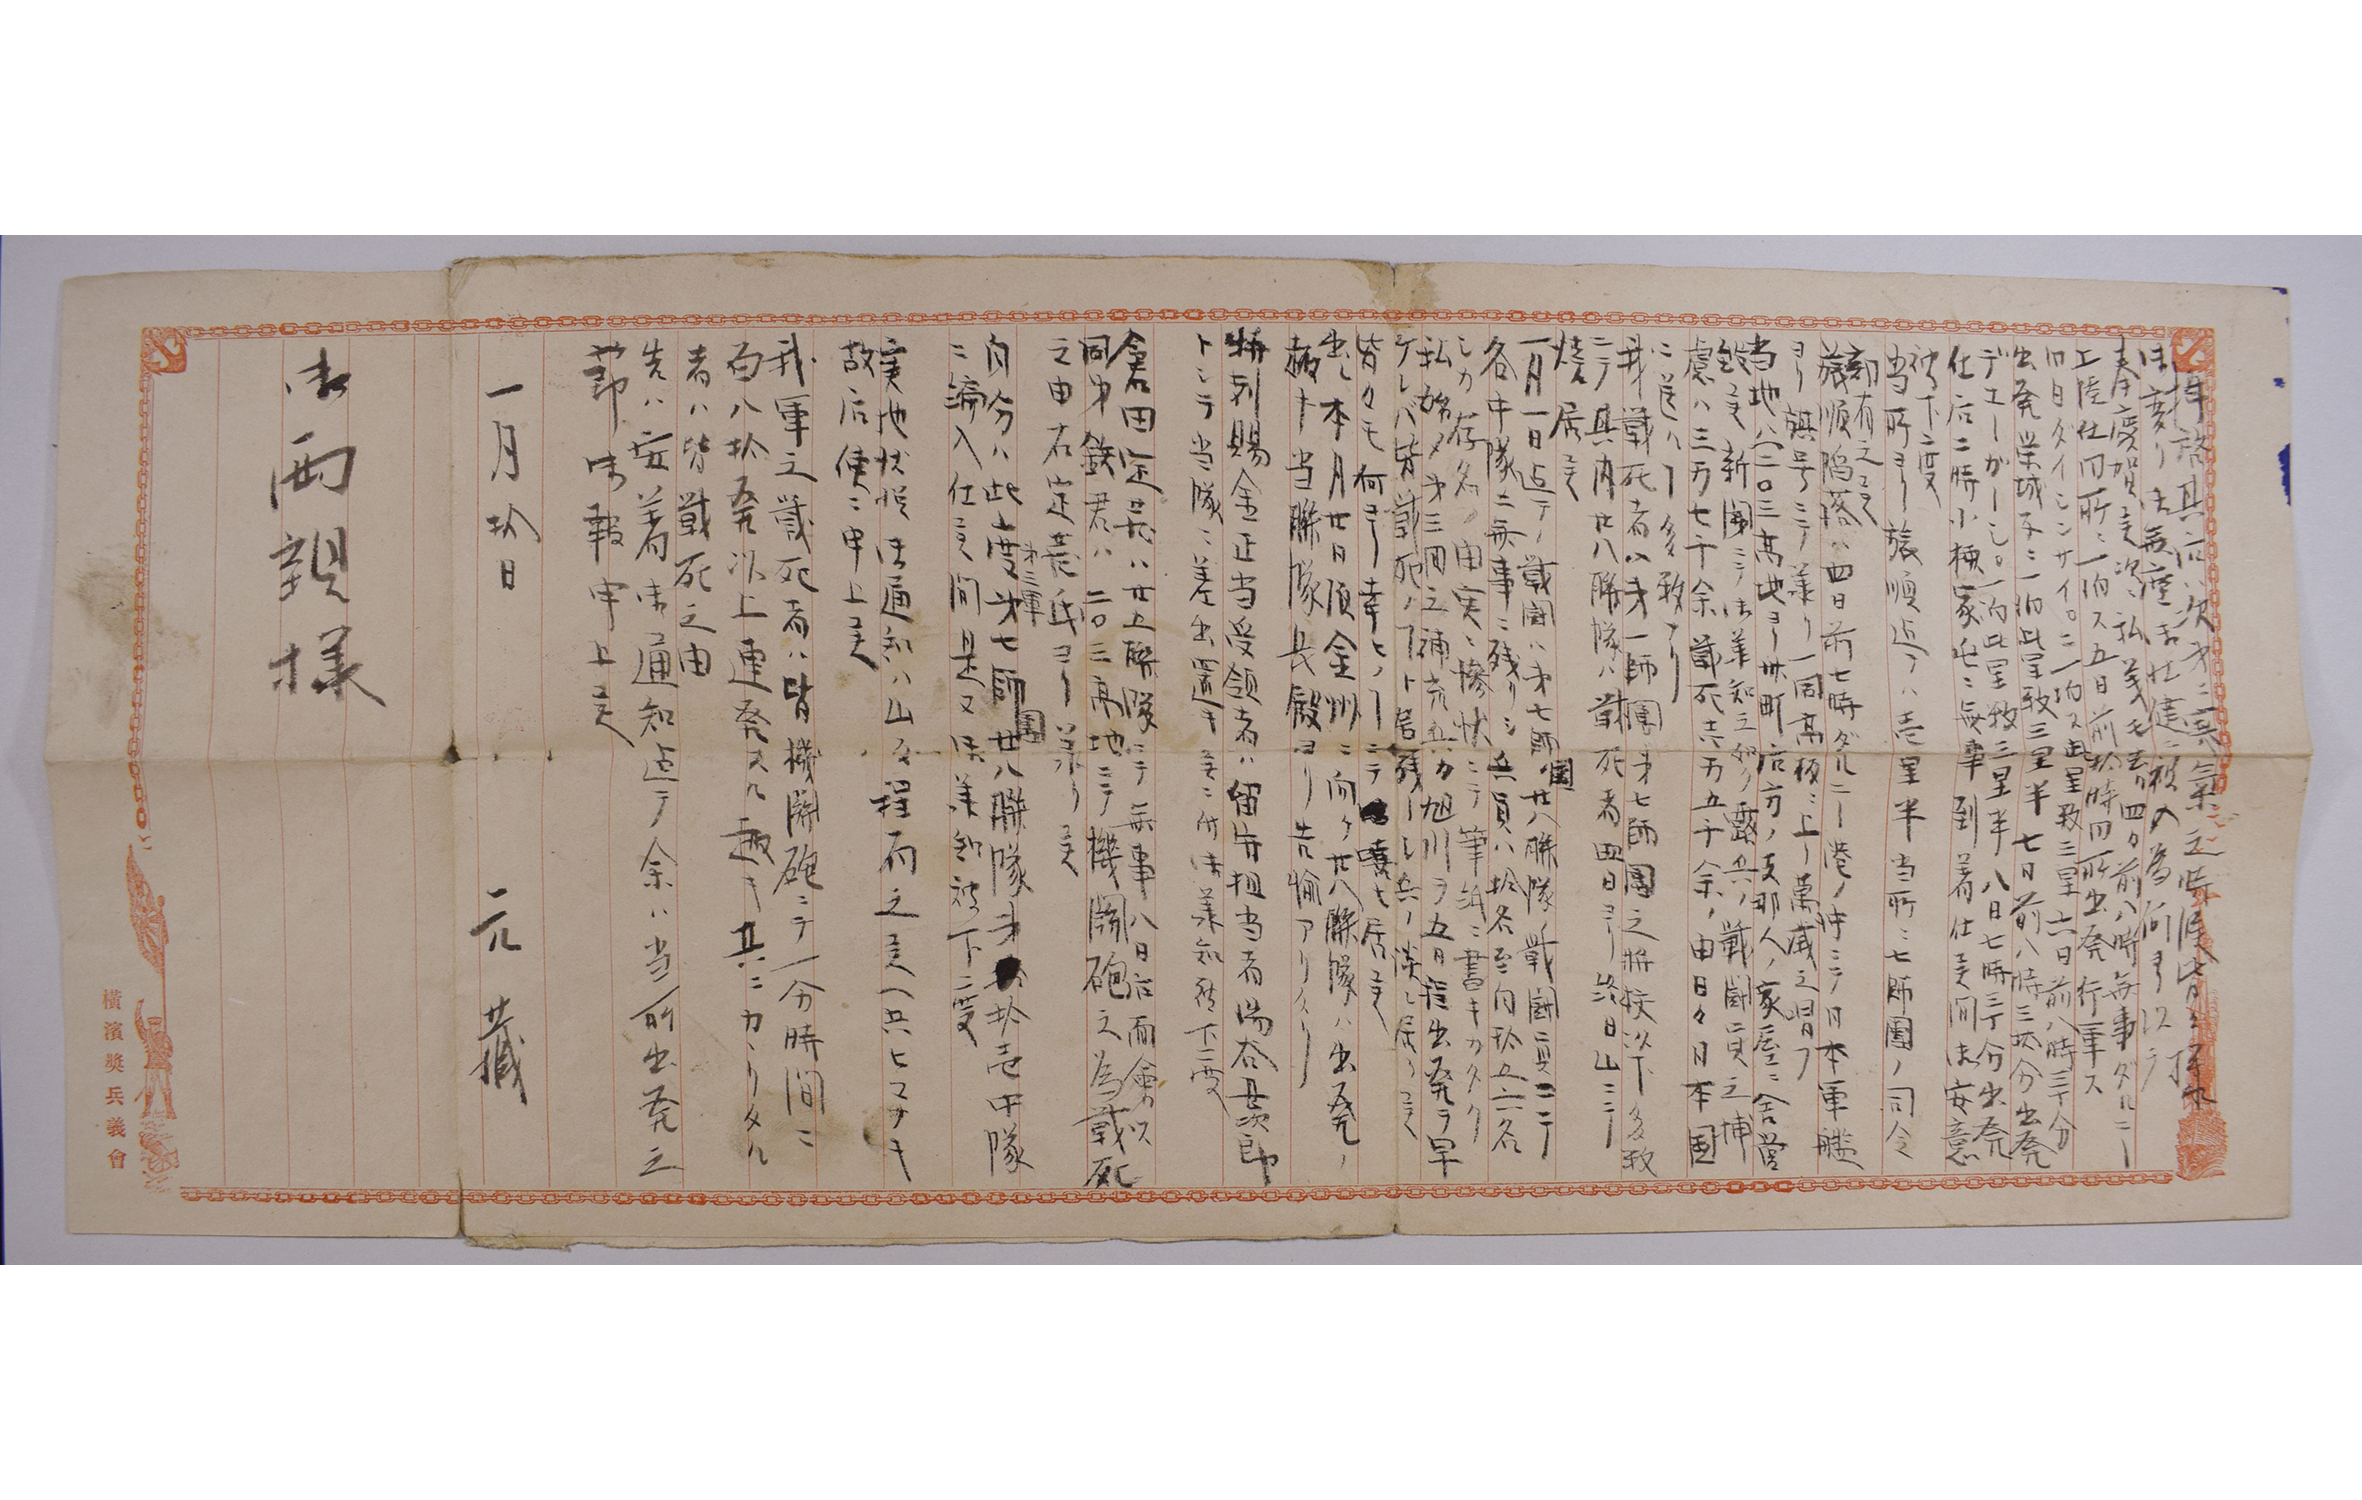 拝啓其后ハ次第ニ寒気之時候皆々様
御変リ御無事壮健ニ被入為何ヨリ以テ
奉慶賀候次ニ私義モ去ル四日前八時無事ダルニー
上陸仕同所ニ一泊ス五日前拾時同所出発行軍ス
同日ダイシンサイ。ニ一泊ス此里数三里六日前八時三十分
出発栄城子ニ一泊此里数三里半七日前八時三拾分出発
デエーかーし。一泊此里数三里半八日七時三十分出発
仕后二時小極家屯ニ無事到着仕候間御安意
被下度
当所ヨリ旅順迄ハ壱里半当所ニ七師團ノ司令
部有之候
旅順陥落ハ四日前七時ダルニー港ノ沖ニテ日本軍艦
ヨリ旗号ニテ承リ一同高板ニ上リ萬歳之唱フ
当地ハ二〇三高地ヨリ廿町后方ノ支那人ノ家屋ニ舎営
致候新聞ニテ御承知之如ク露兵ノ戦闘員之捕
慮ハ三万七千余戦死壱万五千余ノ由日々日本国
ニ送ハヿ多数ナリ
我戦死者ハ第一師團第七師團之将校以下多数
ニテ其内廿八聯隊ハ戦死者四日ヨリ終日山ニテ
焼居候
一月一日迄テノ戦闘ハ第七師團廿八聯隊ノ戦闘員ニテ
各中隊ニ無事ニ残リシ兵員ハ拾名至内拾五六名
シカ存名ノ由実ニ惨状ニテ筆紙ニ書キカタク
私始メ第三回之補充兵カ旭川ヲ五日程出発ヲ早
ケレバ皆戦死ノヿト居残ーレ兵ノ談し居り候
皆々モ何ヨリ幸ヒノヿニテ嘆キ居候
出シ本月廿日頃金州ニ向ケ廿八聯隊ハ出発ノ
趣ナ当聯隊長殿ヨリ告諭アリタリ
特別賜金正当受領者ハ留守担当者湯谷喜次郎
トシテ当隊ニ差出置キ候ニ付御承知被下度
倉田定吉ハ廿五聯隊ニテ無事八日后面會カ以
同第鉄君ハ二〇三高地ニテ機関砲之為戦死
之由右定吉氏ヨリ承リ候
第三軍
自分ハ此度第七師團廿八聯隊第拾壱中隊
ニ編入仕候間是又御承知被下度
実地状況御通知ハ山々程有之候ヘ共ヒマナキ
故后便ニ申上候
我軍之戦死者ハ皆機関砲ニテ一分時間ニ
百八拾発以上連発スル趣キ其ニカヽリタル
者ハ皆戦死之由
先ハ安着御通知迄テ余ハ当所出発之
節御報申上候
一月拾日
元蔵
御両親様
横濱奨兵義會